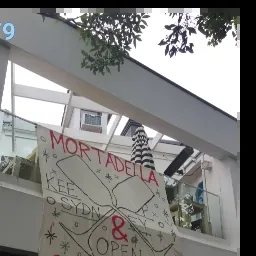 rg
MORTADELLA
KEE
SYDN
&
OPEN